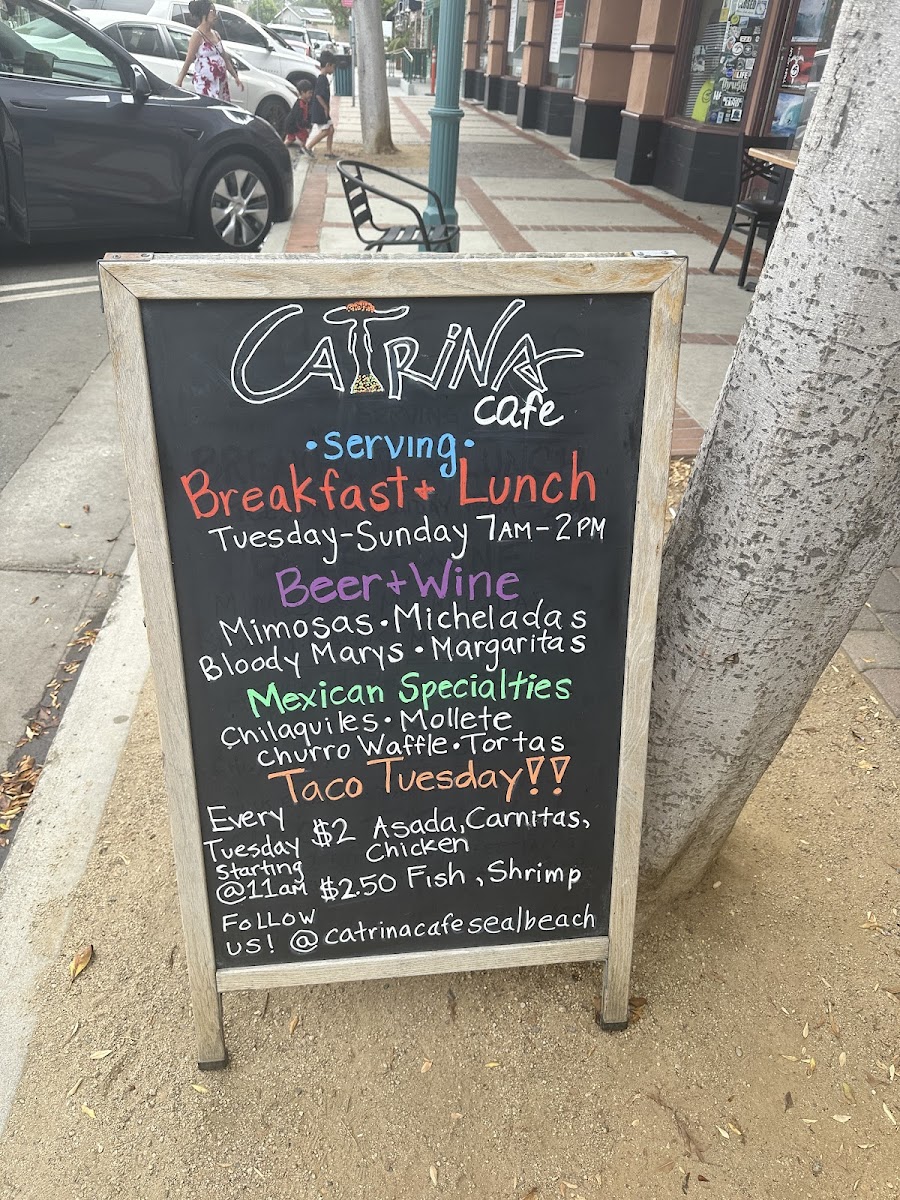 CATRINA
cafe
•serving•
Breakfast + Lunch
Tuesday-Sunday 7AM-2PM
Beer + Wine
Mimosas • Micheladas
Bloody Marys • Margaritas
Mexican Specialties
Chilaquiles • Mollete
Churro Waffle • Tortas
Taco Tuesday!!
Every
Tuesday
Starting
@11am
$2 Asada, Carnitas,
Chicken
$2.50 Fish, Shrimp
Follow
us! @catrinacafesealbeach